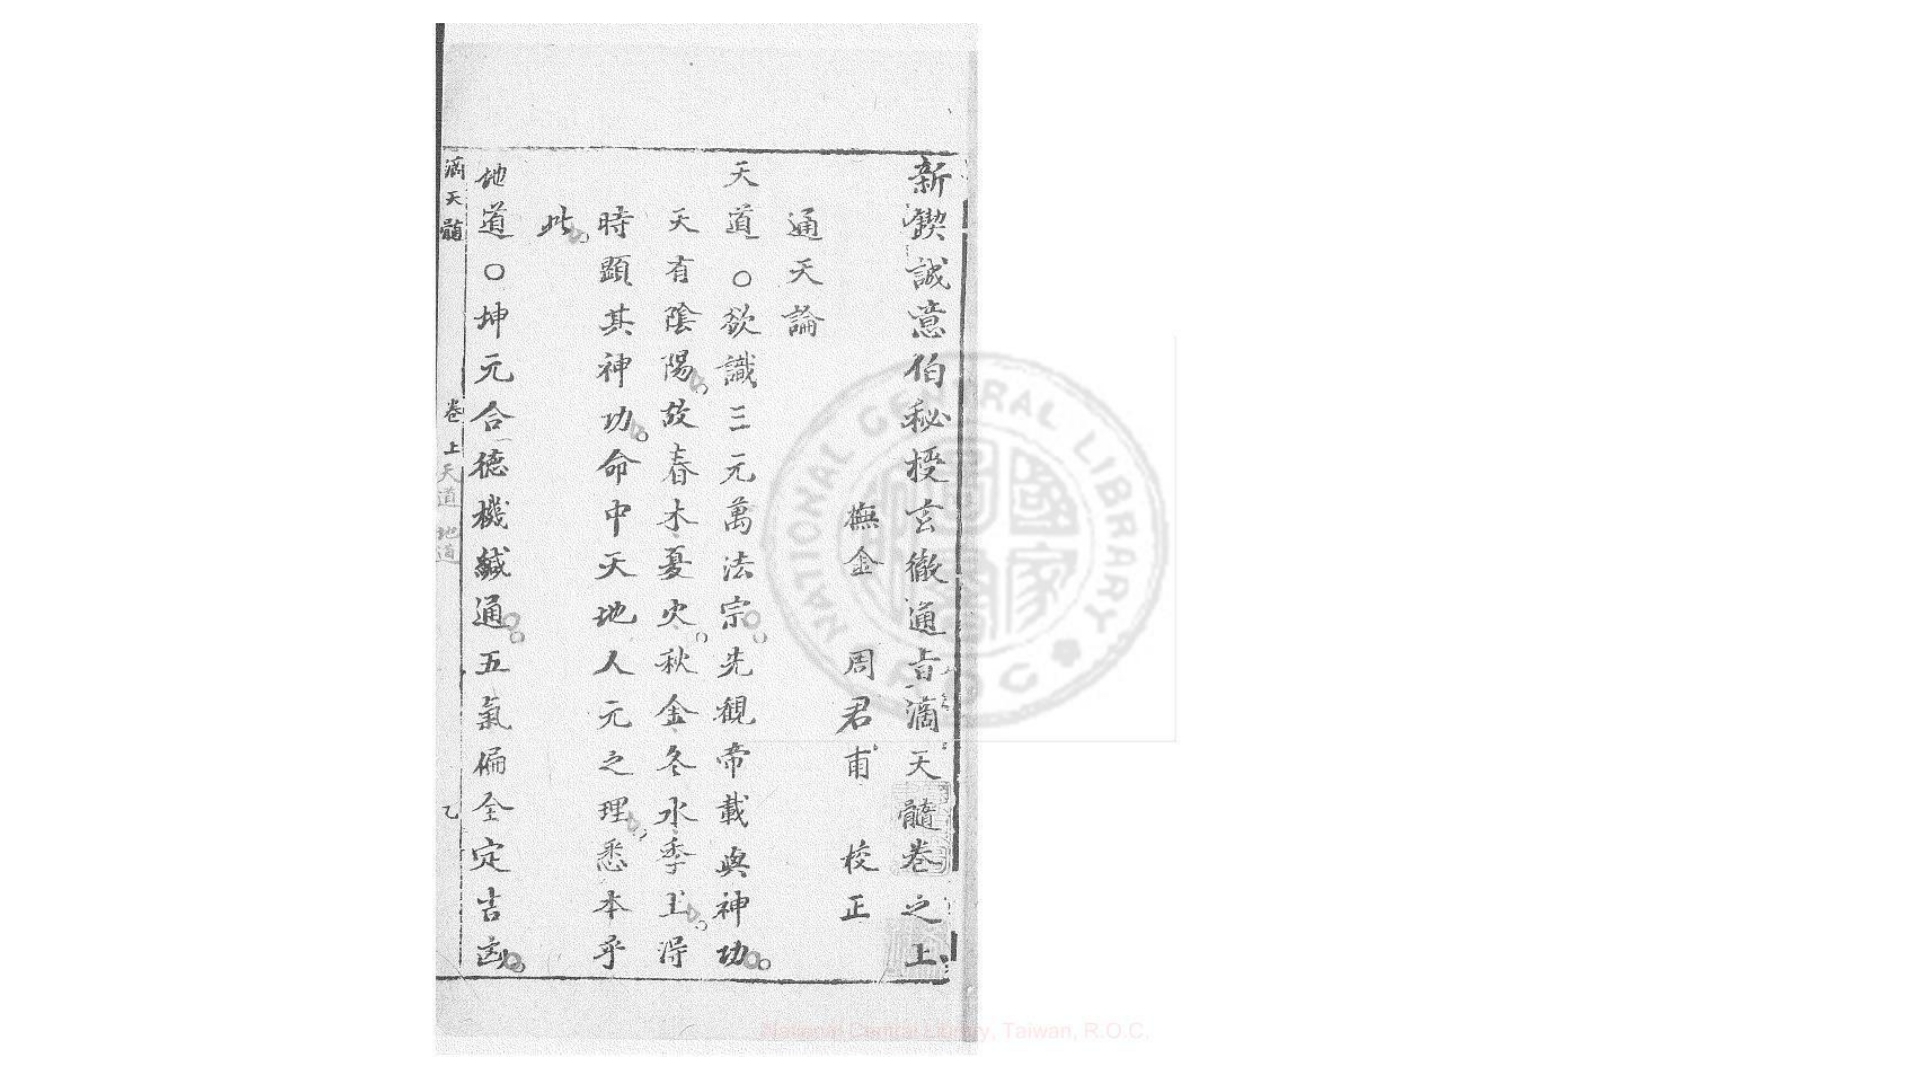 新鍥誠意伯秘授玄徹通旨滴天髓卷之上
撫金 周君甫 校正
通天論
天道○欲識三元萬法宗先觀帝載與神功
天有陰陽故春木夏火秋金冬水季土得
時顯其神功命中天地人元之理悉本乎
此
地道○坤元合德機緘通五氣偏全定吉凶
滴天髓 卷上 天道 地道 乙
NATIONAL CENTRAL LIBRARY
R.O.C
國家圖書館
National Central Library, Taiwan, R.O.C.